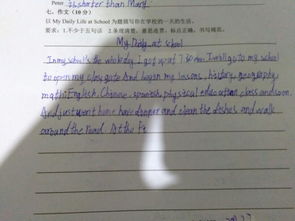 Peter is shorter than Mary.
七、作文(10分)
以 My Daily Life at School 为题描写你在学校的一天的生活。
要求:1.不少于五句话 2.条理清楚,意思连贯,标点正确,书写规范。
My Daily at school
In my school's the whole day. I got up at I go to my school
to open my class And began my lessons, history, geography
math English, Chinese, spanish, physical education class and soon.
And just went home have danper and clean the dishes and walk
around the road. At the